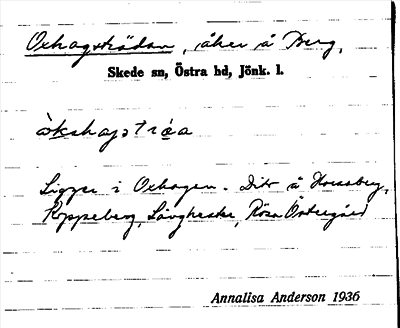 Oxhagsträdan, åker å Berg,
Skede sn, Östra hd, Jönk. l.
òkshagstráa
Ligger i Oxhagen. Dito å Horssberg,
Koppeberg, Lövhester, Rösa Östergård
Annalisa Anderson 1936